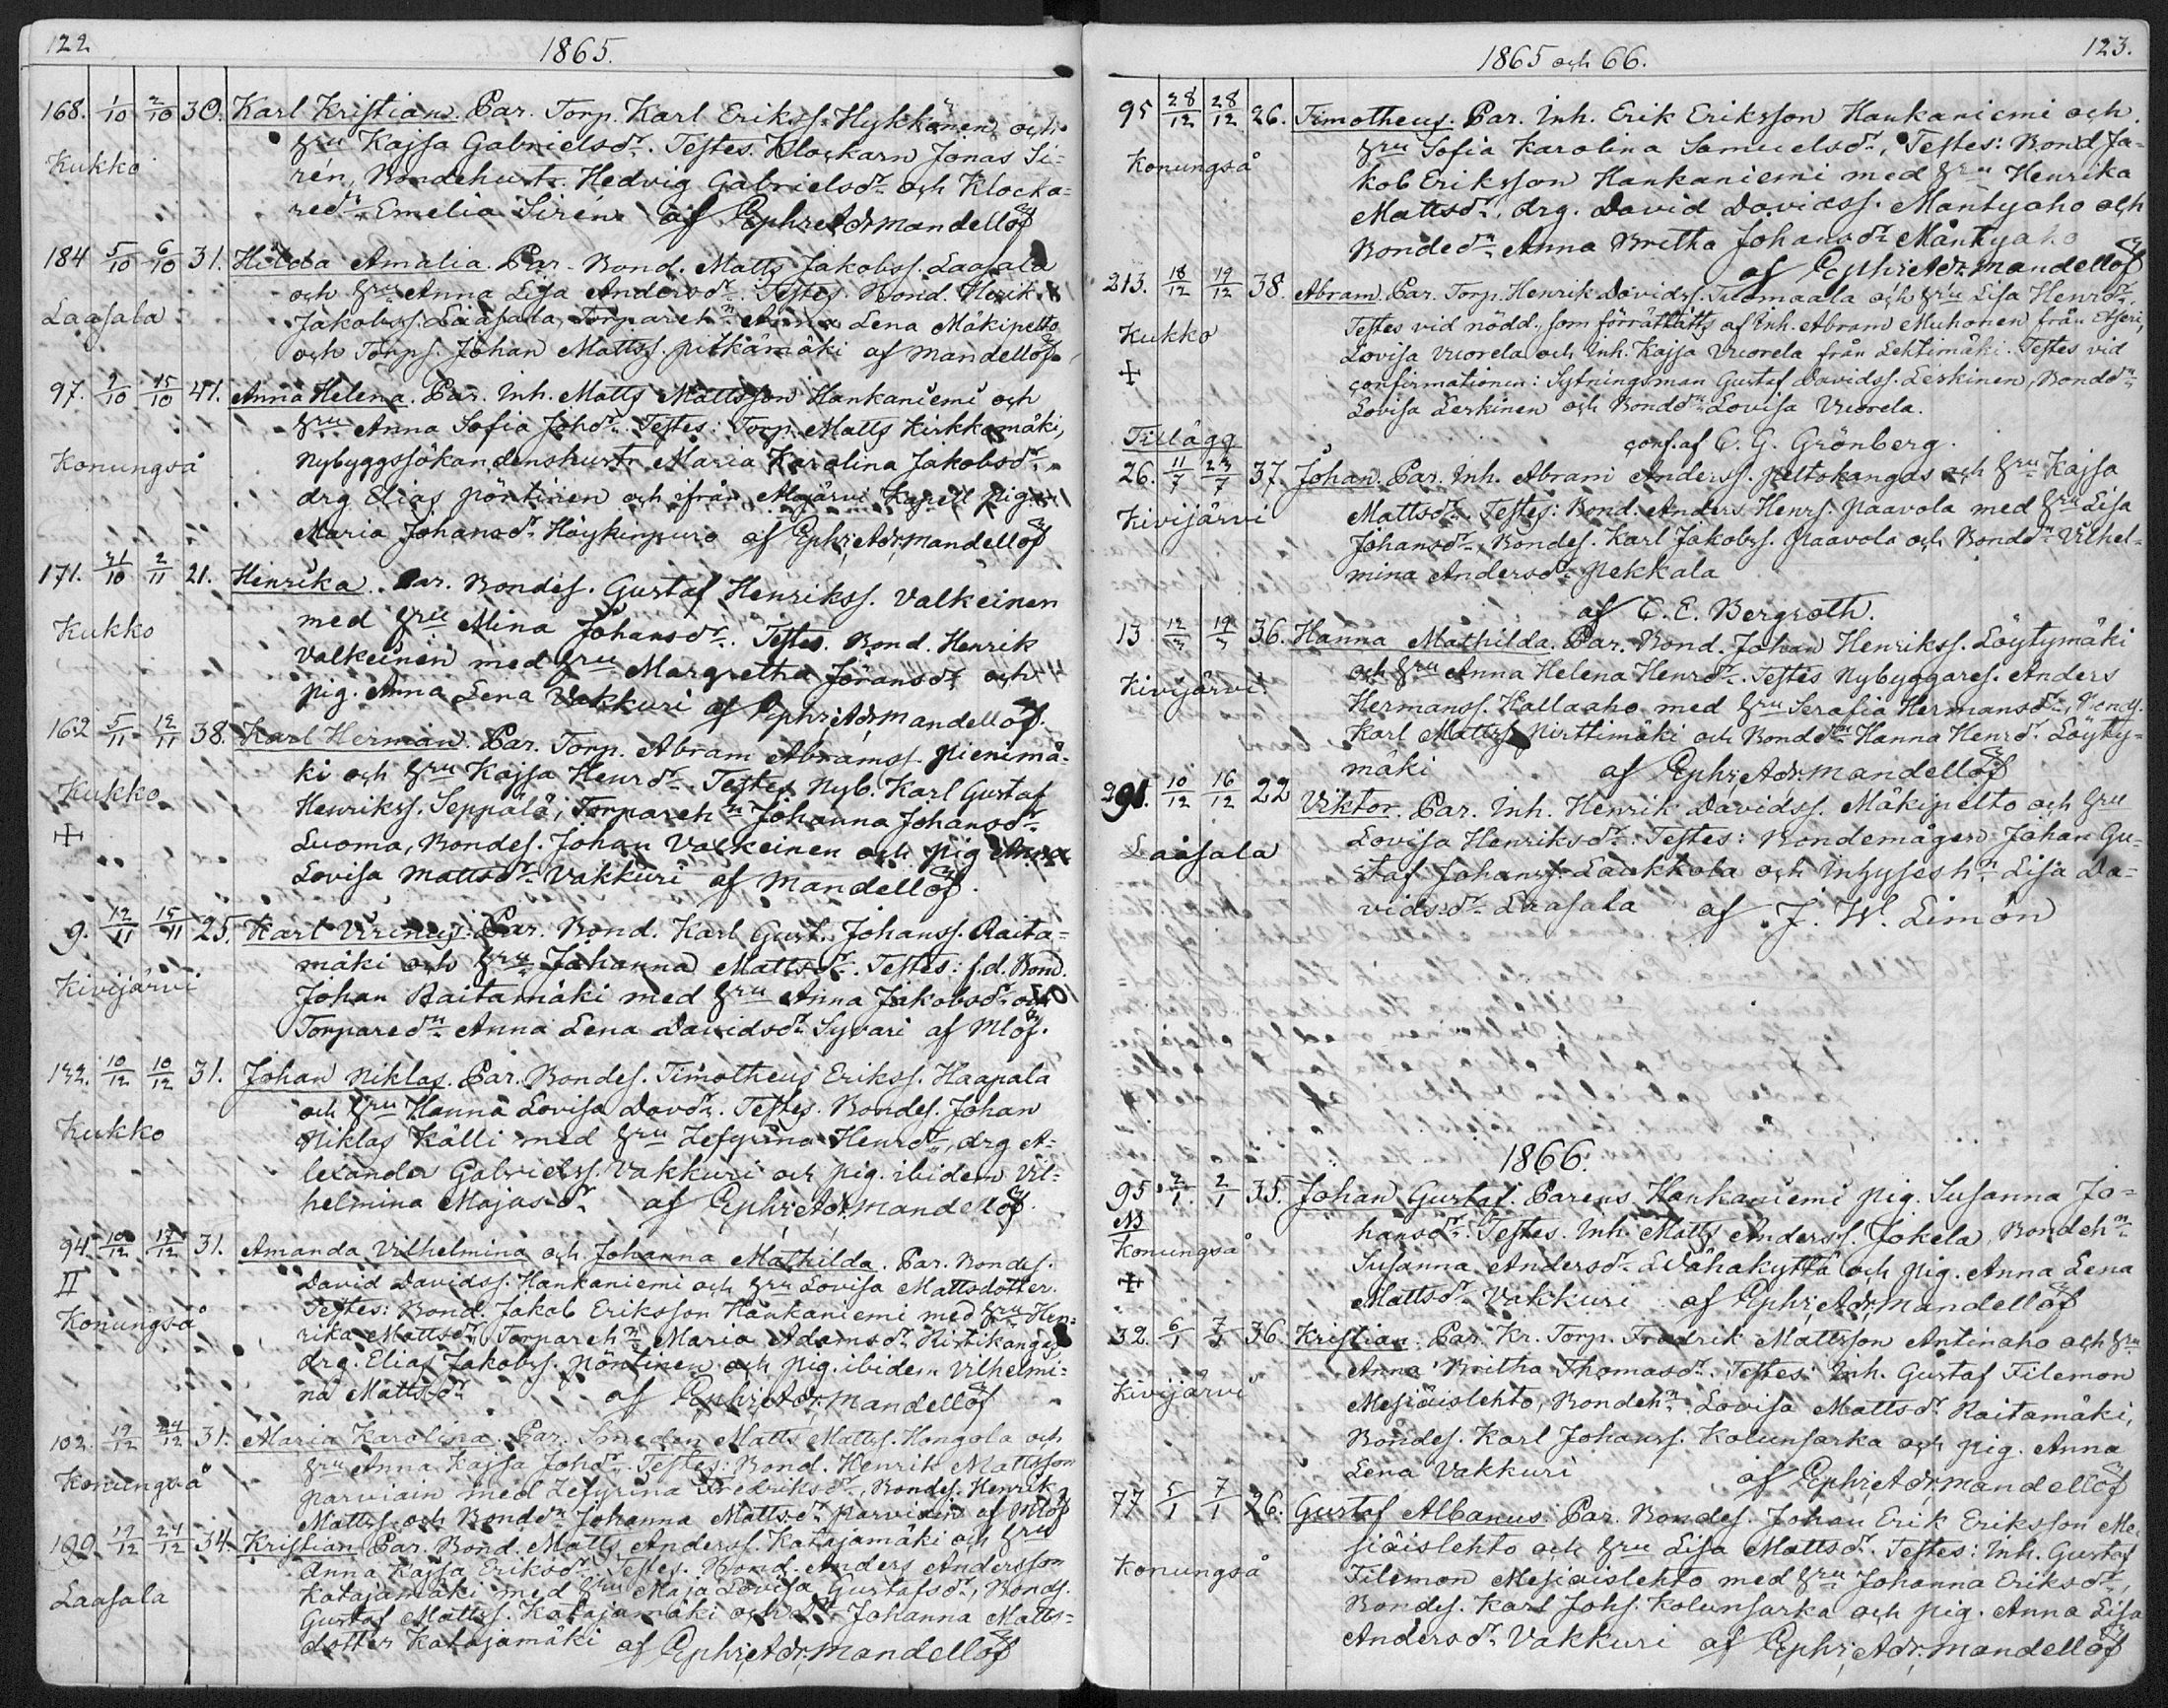 122
1865.
168. 1/10 2/10 30. Karl Kristian. Par. Torp. Karl Erikss. Hykkönen och
Kukko hru Kajsa Gabrielsdr. Testes. Klockarn Jonas Si=
rén, Bondehustr. Hedvig Gabrielsdr och Klocka=
redn Emelia Sirén af Ephr. Adr. Mandellöf
184 5/10 6/10 31. Hilda Amalia. Par. Bond. Matts Jakobss. Laasala
och hru Anna Lisa Andersdr. Testes. Bond. Henrik
Laasala Jakobss. Laasala, Torparehn Anna Lena Mäkipelto
och Torps. Johan Mattss. Pitkämäki af Mandellöf
97. 9/10 15/10 41. Anna Helena. Par. Inh. Matts Mattsson Hankaniemi och
hru Anna Sofia Johdr. Testes: Torp. Matts Kirkkomäki,
Konungså Nybyggssökandenshustr Maria Karolina Jakobsdr,
drg Elias Pöntinen och ifrån Alajärvi Kapell pig.
Maria Johansdr Höykinpuro af Ephr. Adr. Mandellöf
171. 31/10 2/11 21. Henrika. Par. Bondes. Gustaf Henrikss. Valkeinen
Kukko med hru Mina Johansdr. Testes. Bond. Henrik
Valkeinen med hru Margretha Jöransdr och
pig. Anna Lena Vakkuri af Ephr. Adr. Mandellöf.
162 5/11 12/11 38. Karl Herman. Par. Torp. Abram Abramss. Pienimä=
Kukko ki och hru Kajsa Henrdr. Testes Nyb. Karl Gustaf
+ Henrikss. Seppälä, Torparehn Johanna Johansdr
Luoma, Bondes. Johan Valkeinen och pig Anna
Lovisa Mattsdr Vakkuri af Mandellöf.
9. 12/11 15/11 25. Karl Vireneus. Par. Bond. Karl Gust. Johanss. Raita=
Kivijärvi mäki och hru Johanna Mattsdr. Testes: f.d. Bond.
Johan Raitamäki med hru Anna Jakobsdr och
Torparedn Anna Lena Davidsdr Syvari af Mlöf.
132. 10/12 10/12 31. Johan Niklas. Par. Bondes. Timotheus Erikss. Haapala
Kukko och hru Hanna Lovisa Davdr. Testes. Bondes. Johan
Niklas Källi med hru Zefyrina Henrdr, drg A=
lexander Gabrielss. Vakkuri och pig. ibidem Vil=
helmina Majasdr af Ephr. Adr. Mandellöf.
94. 10/12 17/12 31. Amanda Vilhelmina och Johanna Mathilda. Par. Bondes.
II David Davidss. Hankaniemi och hru Lovisa Mattsdotter.
Konungså Testes: Bond. Jakob Eriksson Hankaniemi med hru Hen=
rika Mattsdr, Torparehn Maria Adamsdr Ristikangas
drg. Elias Jakobss. Pöntinen och pig. ibidem Vilhelmi=
na Mattsdr af Ephr. Adr. Mandellöf
102. 19/12 24/12 31. Maria Karolina. Par. Smeden Matts Mattss. Hongola och
Konungså hru Anna Kajsa Johdr. Testes: Bond. Henrik Mattsson
Parviain med Zefyrina Fredriksdr, Bondes. Henrik
Mattss. och Bonddn Johanna Mattsdr Parviain af Mlöf
199 19/12 24/12 34. Kristian Par. Bond. Matts Anderss. Katajamäki och hru
Anna Kajsa Eriksdr. Testes. Bond. Anders Andersson
Laasala Katajamäki med hru Maja Lovisa Gustafsdr, Bonds.
Gustaf Mattss. Katajamäki och dr Johanna Matts=
dotter Katajamäki af Ephr. Adr. Mandellöf
1865 och 66.
123.
95 28/12 28/12 26. Timotheus. Par. Inh. Erik Eriksson Hankaniemi och
Konungså hru Sofia Karolina Samuelsdr, Testes: Bond. Ja=
kob Eriksson Hankaniemi med hru Henrika
Mattsdr, drg. David Davidss. Mäntyaho och
Bondedn Anna Britha Johansdr Mäntyaho
af Ephr. Adr. Mandellöf
213. 18/12 19/12 38. Abram. Par. Torp. Henrik Davidss. Tuomaala och hru Lisa Henrdr.
Kukko Testes vid nödd., som förrättatts af Inh. Abram Muhonen från Etseri,
+ Lovisa Vuorela och Inh. Kajsa Vuorela från Lehtimäki. Testes vid
confirmationen: Sytningsman Gustaf Davidss. Leskinen, Bonddn
Lovisa Leskinen och Bonddn Lovisa Vuorela.
conf. af C. G. Grönberg.
Tillägg
26. 11/7 23/7 37. Johan. Par. Inh. Abram Anderss. Peltokangas och hru Kajsa
Kivijärvi Mattsdr. Testes: Bond. Anders Henrs. Paavola med hru Lisa
Johansdr, Bondes. Karl Jakobss. Paavola och Bonddn Vilhel=
mina Andersdr Pekkala
af C. E. Bergroth.
13 12/3 19/3 36. Hanna Mathilda. Par. Bond. Johan Henrikss. Löytymäki
Kivijärvi och hru Anna Helena Henrdr. Testes Nybyggares. Anders
Hermanss. Hallaaho med hru Serafia Hermansdr, Bonds.
Karl Mattss. Nirttimäki och Bondedn Hanna Henrdr Löyty=
mäki af Ephr. Adr. Mandellöf
291. 10/12 16/12 22 Viktor. Par. Inh. Henrik Davidss. Mäkipelto och hru
Laasala Lovisa Henriksdr. Testes: Bondemågen Johan Gu=
staf Johanss. Laukkola och Inhyseshn Lisa Da=
vidsdr Laasala af J. W. Limón
1866.
95 2/1 2/1 35. Johan Gustaf. Parens Hankaniemi pig. Susanna Jo=
NB hansdr. Testes. Inh. Matts Anderss. Jokela, Bondehn
Konungså Susanna Andersdr Vähäkyttä och pig. Anna Lena
+ Mattsdr Vakkuri af Ephr. Adr. Mandellöf
32. 6/1 7/1 36. Kristian. Par. Kr. Torp. Fredrik Mattsson Antinaho och hru
Kivijärvi Anna Britha Thomasdr. Testes: Inh. Gustaf Filemon
Mesiäislehto, Bondehn Lovisa Mattsdr Raitamäki,
Bondes. Karl Johanss. Kolunsarka och pig. Anna
Lena Vakkuri af Ephr. Adr. Mandellöf
77 5/1 7/1 26. Gustaf Albanus. Par. Bondes. Johan Erik Eriksson Me=
siäislehto och hru Lisa Mattsdr. Testes: Inh. Gustaf
Konungså Filemon Mesiäislehto med hru Johanna Eriksdr,
Bondes. Karl Johs. Kolunsarka och pig. Anna Lisa
Andersdr Vakkuri af Ephr. Adr. Mandellöf